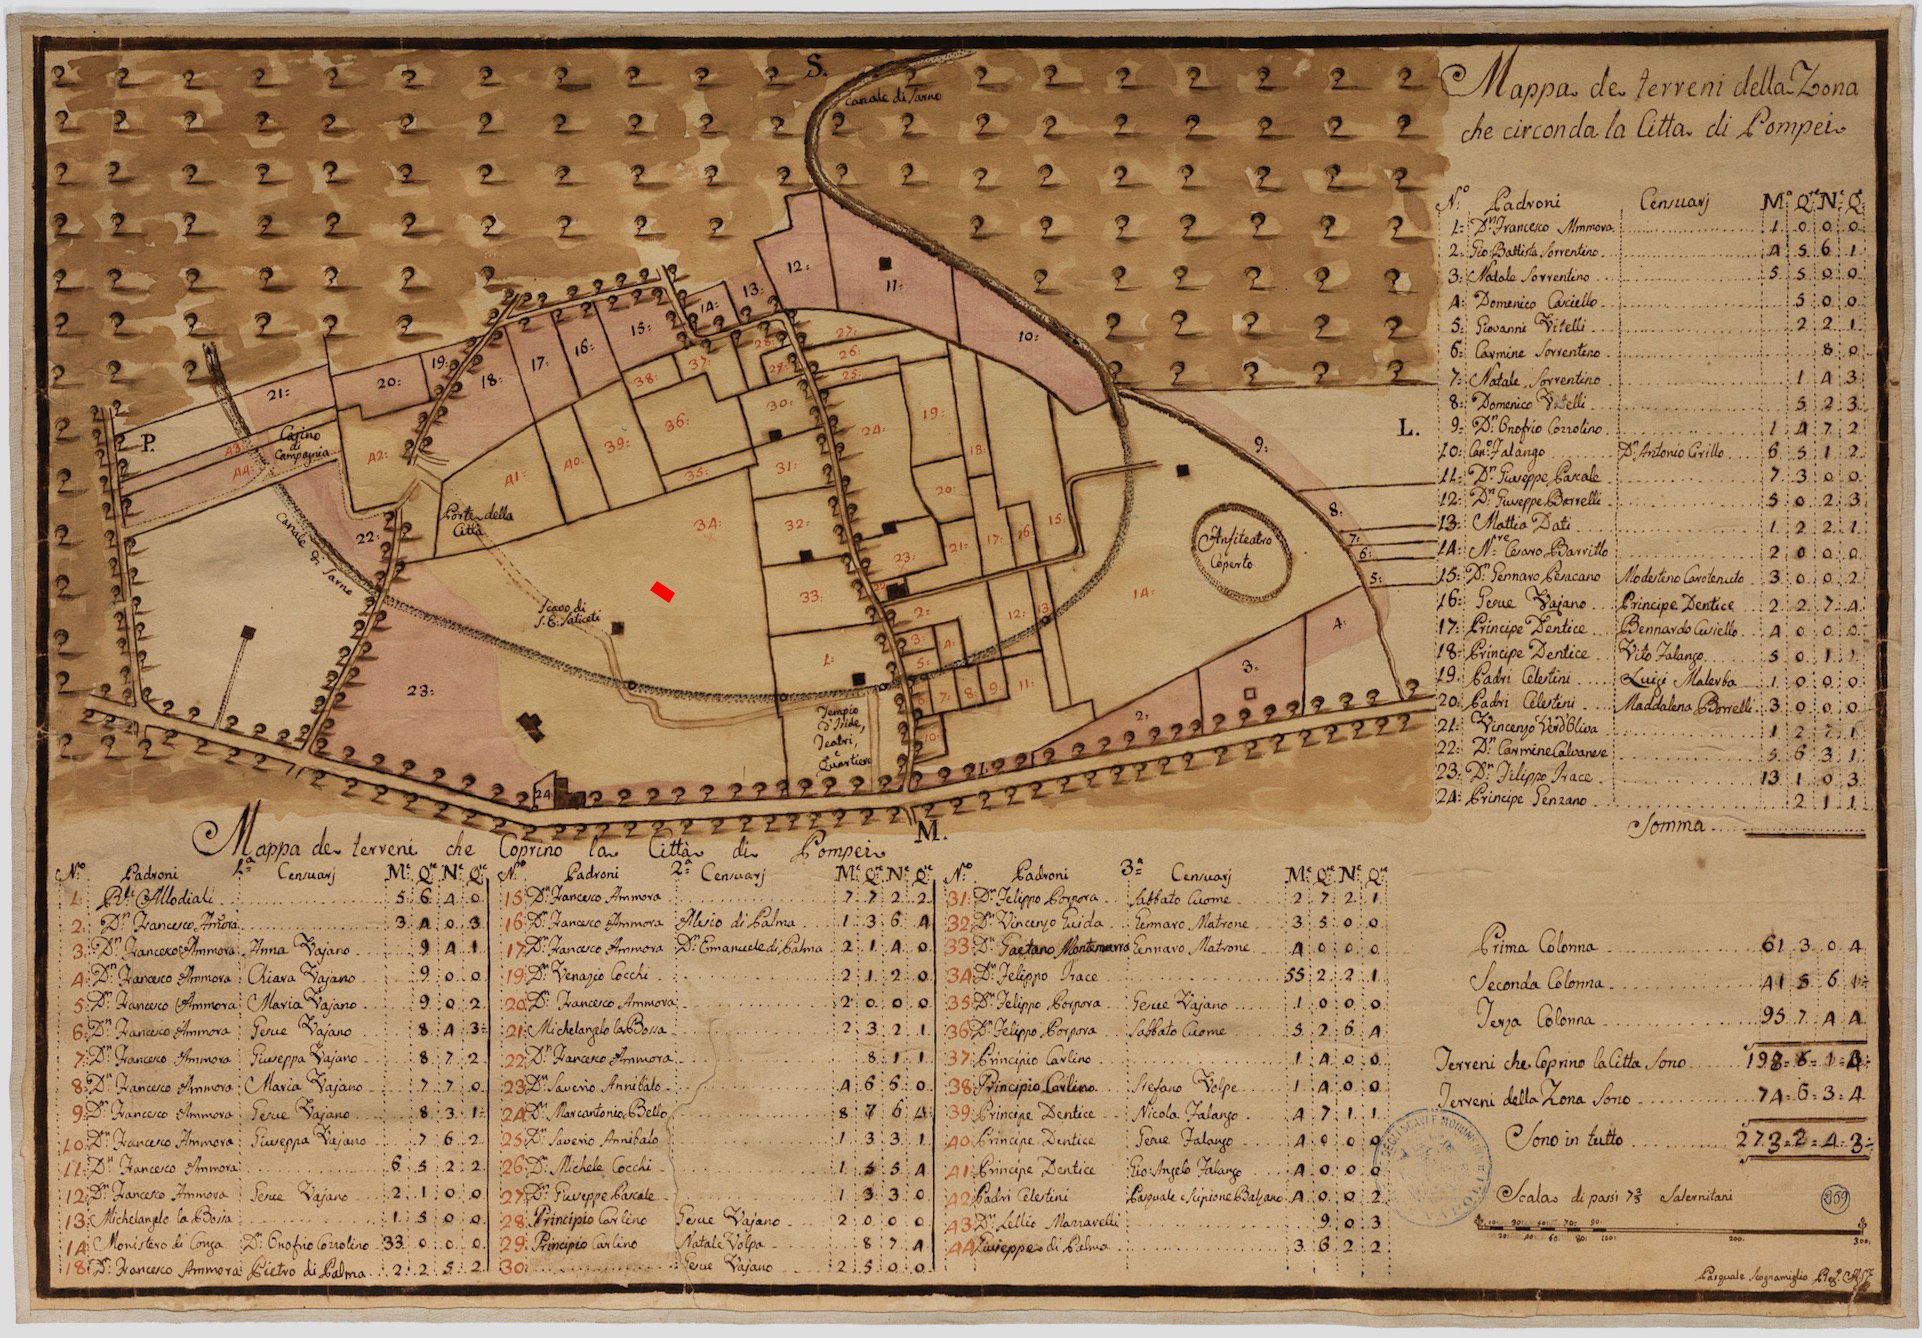 Mappa de terreni della Zona
che circonda la Citta di Pompei
Nº Padroni Censuarj Mª Qre Ne Qe
1: Dn Francesco Ammora 1 0 0 0
2: Gio Battista Sorrentino 4 5 6 1
3: Natale Sorrentino 5 5 0 0
4: Domenico Casiello 5 0 0
5: Giovanni Vitelli 2 2 1
6: Carmine Sorrentino 8 0
7: Natale Sorrentino 1 4 3
8: Domenico Vitelli 5 2 3
9: Dn Onofrio Cozzolino 1 4 7 2
10: Cano Falango Dn Antonio Cirillo 6 5 1 2
11: Dn Giuseppe Pascale 7 3 0 0
12: Dn Giuseppe Borrelli 5 0 2 3
13: Mattia Dati 1 2 2 1
14: Nre Cesaro Barritto 2 0 0 0
15: Dn Gennaro Pesacano Modestino Carotenuto 3 0 0 2
16: Gesue Vajano Principe Dentice 2 2 7 4
17: Principe Dentice Bennardo Casiello 4 0 0 0
18: Principe Dentice Vito Falango 5 0 1 1
19: Padri Celestini Luigi Malerba 1 0 0 0
20: Padri Celestini Maddalena Borrelli 3 0 0 0
21: Vincenzo Verd'Oliva 1 2 7 1
22: Dn Carmine Calvanese 5 6 3 1
23: Dn Filippo Irace 13 1 0 3
24: Principe Genzano 2 1 1
Somma
S.
P.
L.
M.
Canale di Sarno
Casino
di
Campagnia
Canale di Sarno
Porte della
Città
Scavo di
S. E. Saliceti
Anfiteatro
Coperto
Tempio
d'Iside,
Teatri,
e
Quartiere
12: 11: 10: 13: 14: 15: 16: 17: 18: 19: 20: 21: 22: 23: 24 9: 8: 7: 6: 5: 4: 3: 2: 1:
27: 26: 25: 28: 29: 37: 38: 36: 30: 39: 40: 41: 42: 43: 44: 35: 31: 34: 32: 33: 24: 19: 18: 20: 21: 17: 16: 15: 23: 22 2: 12: 13: 14: 3: 4: 5: 1: 6 7: 8: 9: 11: 10:
Mappa de terreni che Coprino la Città di Pompei
Nº Padroni 1ª Censuarj Me Qre Ne Qe
1: Rli Allodiali 5 6 4 0
2: Dn Francesco Amora 3 4 0 3
3: Dn Francesco Ammora Anna Vajano 9 4 1
4: Dn Francesco Ammora Chiara Vajano 9 0 0
5: Dn Francesco Ammora Maria Vajano 9 0 2
6: Dn Francesco Ammora Gesue Vajano 8 4 3
7: Dn Francesco Ammora Giuseppa Vajano 8 7 2
8: Dn Francesco Ammora Maria Vajano 7 7 0
9: Dn Francesco Ammora Gesue Vajano 8 3 1
10: Dn Francesco Ammora Giuseppa Vajano 7 6 2
11: Dn Francesco Ammora 6 5 2 2
12: Dn Francesco Ammora Gesue Vajano 2 1 0 0
13: Michelangelo la Bossa 1 5 0 0
14 Monistero di Conza Dn Onofrio Cozzolino 33 0 0 0
18: Dn Francesco Ammora Pietro di Palma 2 2 5 2
Nº Padroni 2ª Censuarj Me Qre Ne Qe
15: Dn Francesco Ammora 7 7 2 2
16: Dn Francesco Ammora Alesio di Palma 1 3 6 4
17: Dn Francesco Ammora Dn Emanuele di Palma 2 1 4 0
19: Dn Venanzio Cocchi 2 1 2 0
20: Dn Francesco Ammora 2 0 0 0
21: Michelangelo la Bossa 2 3 2 1
22: Dn Francesco Ammora 8 1 1
23: Dn Saverio Annibalo 4 6 6 0
24: Dn Marcantonio Bello 8 7 6 4
25: Dn Saverio Annibalo 1 3 3 1
26: Dn Michele Cocchi 1 5 5 4
27: Dn Giuseppe Pascale 1 3 3 0
28: Principio Carlino Gesue Vajano 2 0 0 0
29: Principio Carlino Natale Volpa 8 7 4
30: Gesue Vajano 2 5 0 0
Nº Padroni 3ª Censuarj Me Qre Ne Qe
31: Dn Felippo Corpora Sabbato Cuome 2 7 2 1
32: Dn Vincenzo Guida Gennaro Matrone 3 5 0 0
33: Dn Gaetano Montemurra Gennaro Matrone 4 0 0 0
34: Dn Felippo Irace 55 2 2 1
35: Dn Felippo Corpora Gesue Vajano 1 0 0 0
36: Dn Felippo Corpora Sabbato Cuome 5 2 6 4
37: Principio Carlino 1 4 0 0
38: Principio Carlino Stefano Volpe 1 4 0 0
39: Principe Dentice Nicola Falango 4 7 1 1
40: Principe Dentice Gesue Falango 4 0 0 0
41: Principe Dentice Gio: Angelo Falango 4 0 0 0
42: Padri Celestini Pasquale Scipione Balzano 4 0 0 2
43: Dn Lellio Mazzarelli 9 0 3
44: Giuseppe di Palma 3 6 2 2
Prima Colonna 61 3 0 4
Seconda Colonna 41 5 6 1
Terza Colonna 95 7 4 4
Terreni che Coprino la Citta Sono 198=6=1=4=
Terreni della Zona Sono 74=6=3=4
Sono in tutto 273=2=4=3=
Scala di passi 7⅔ Salernitani
259
10. 20. 30. 40. 50. 60. 70. 80. 90. 100. 200. 300.
Pasquale Scognamiglio